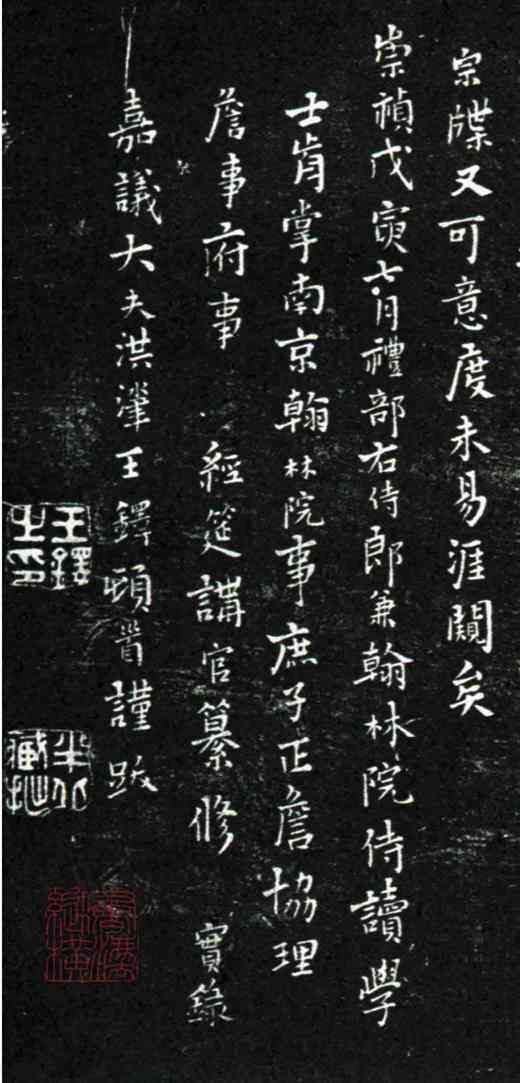 宗牒又可意度未易涯闚矣
崇禎戊寅七月禮部右侍郎兼翰林院侍讀學
士歬掌南京翰林院事庶子正詹協理
詹事府事 經筵講官纂修 實錄
嘉議大夫洪王鐸頓首謹跋
王鐸之印